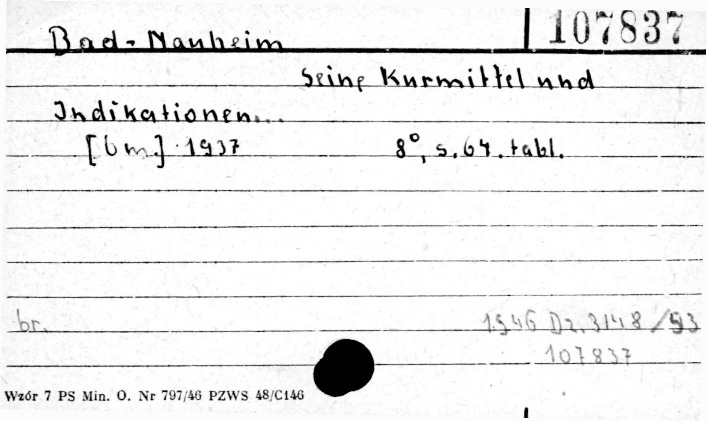 Bad-Nauheim 107837
Seine Kurmittel und
Indikationen...
[bm.] 1937 8°, s. 64. tabl.
br. 1946 Dz. 3148/53
107837
Wzór 7 PS Min. O. Nr 797/46 PZWS 48/C146